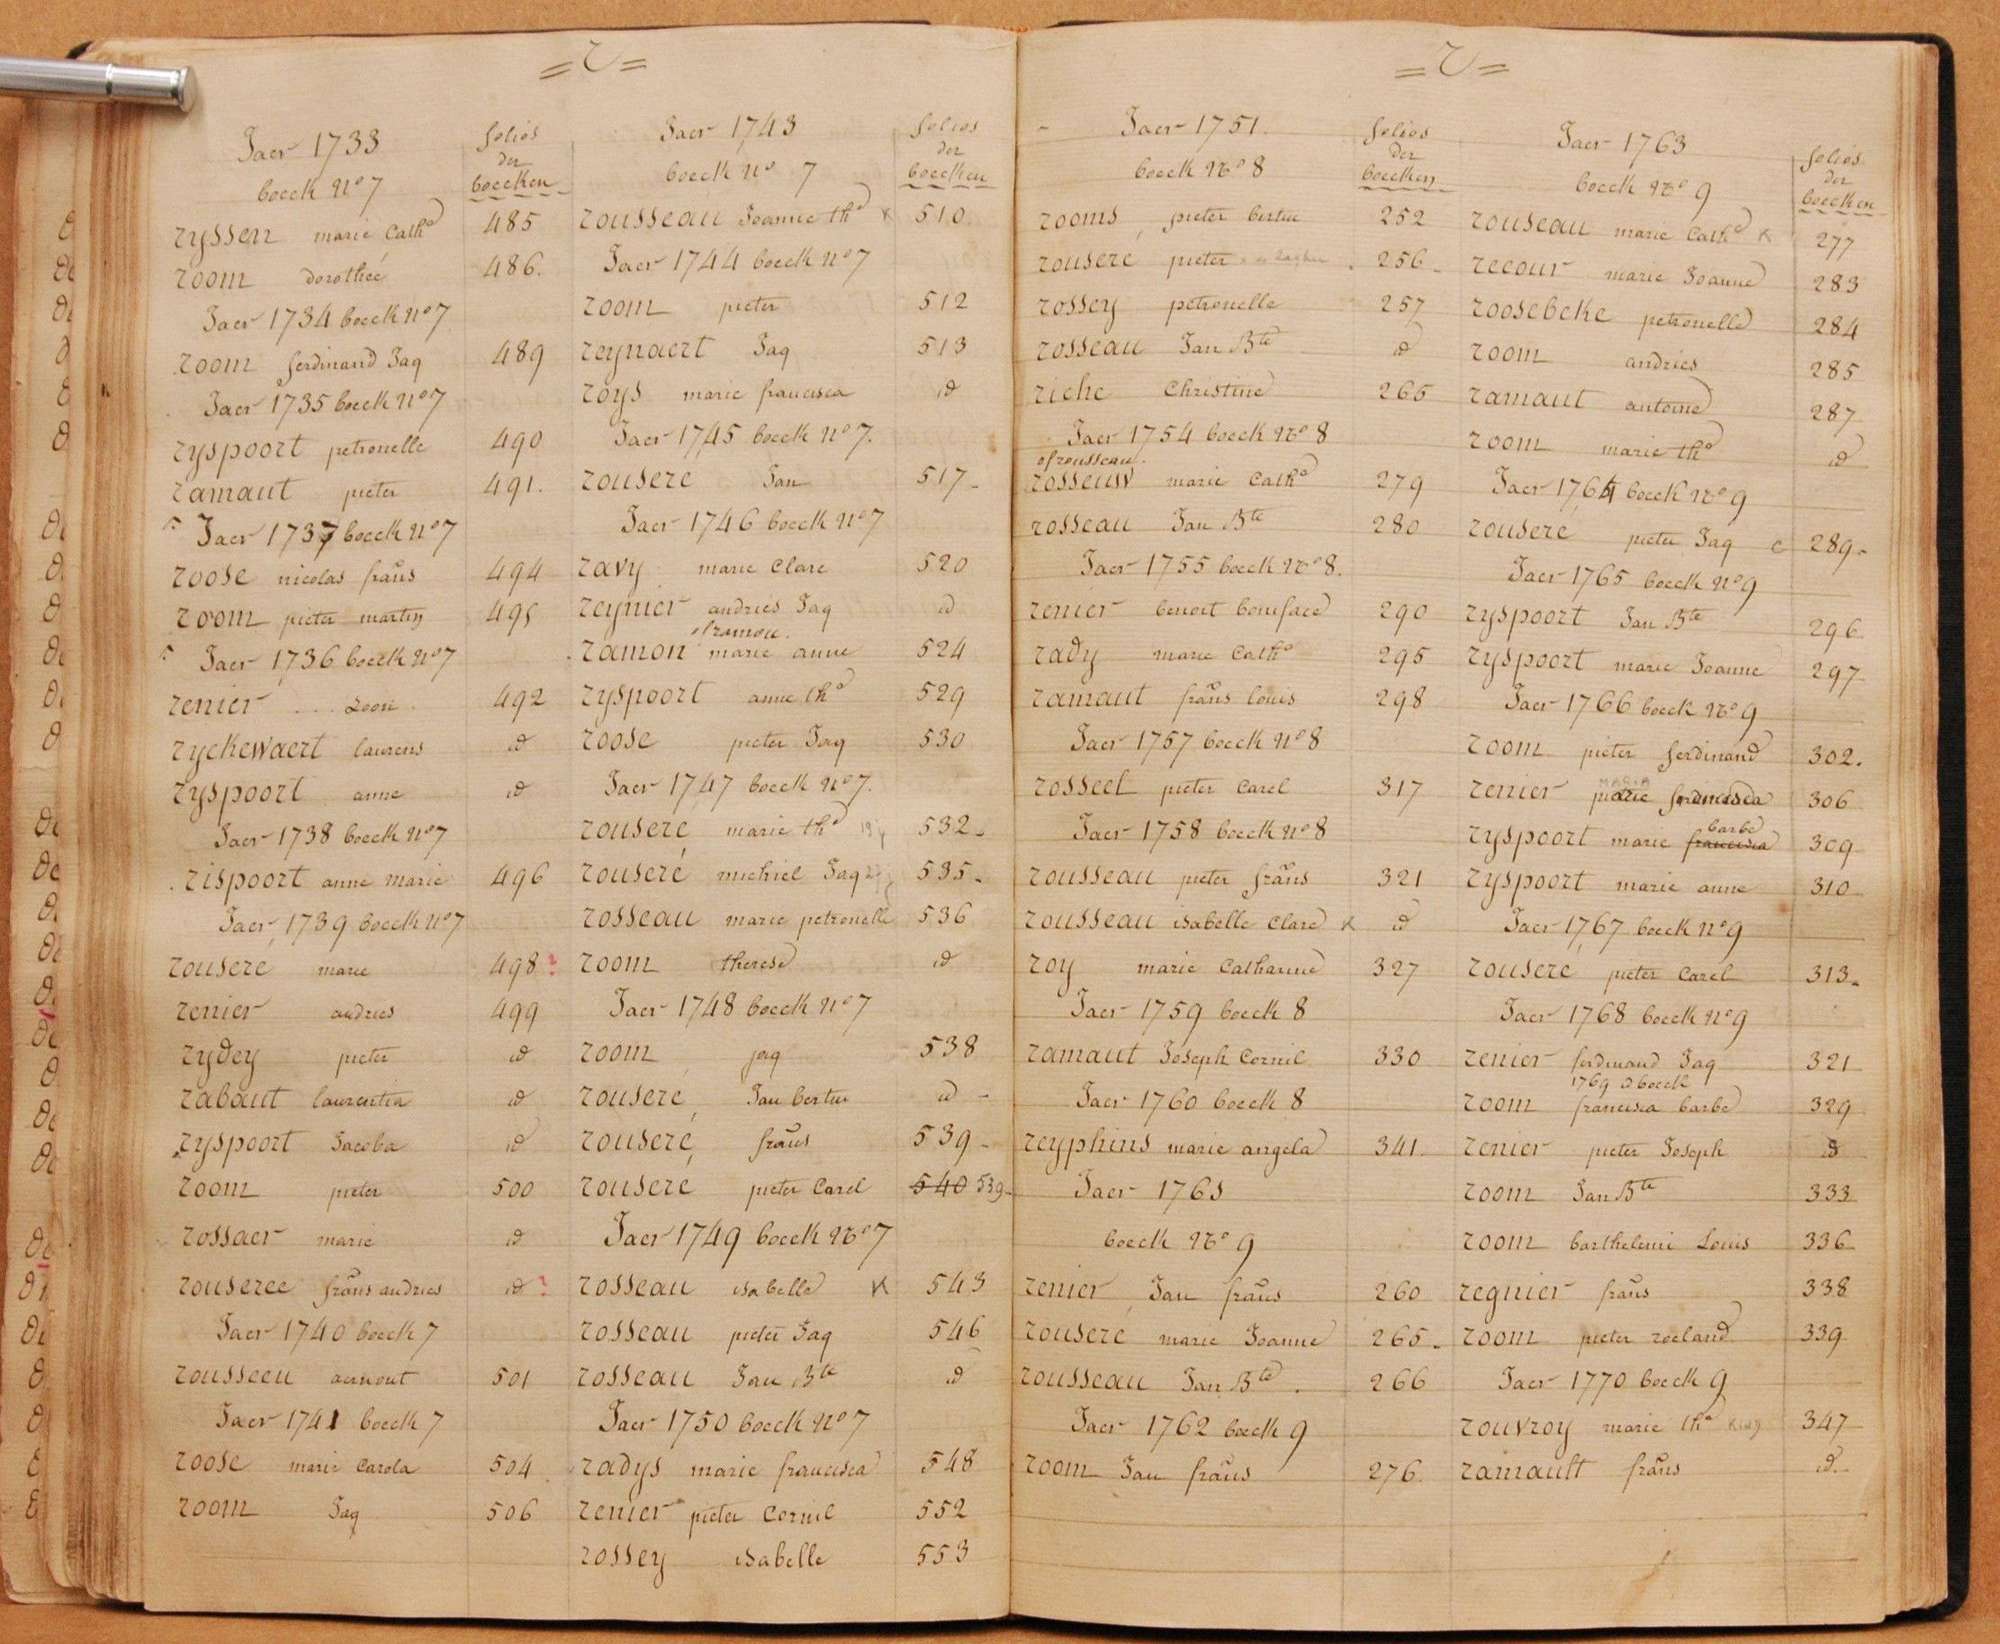 = r =
Jaer 1733
folios der boecken
boeck No 7
ryssen marie Catho 485
room dorothée 486.
Jaer 1734 boeck No 7
room ferdinand Jaq 489
Jaer 1735 boeck No 7
ryspoort petronelle 490
ramaut pieter 491.
Jaer 1737 boeck No 7
roose nicolas frans 494
room pieter martin 495
Jaer 1736 boeck No 7
renier Leon 492
ryckewaert laurens id
ryspoort anne id
Jaer 1738 boeck No 7
rispoort anne marie 496
Jaer 1739 boeck No 7
rouseré marie 498 ?
renier andries 499
rydey pieter id
rabaut laurentia id
ryspoort Jacoba id
room pieter 500
rossaer marie id
rouseree frans andries id ?
Jaer 1740 boeck 7
rousseeu aernout 501
Jaer 1741 boeck 7
roose marie Carola 504
room Jaq 506
Jaer 1743
folios der boecken
boeck No 7
rousseau Joanne tho x 510
Jaer 1744 boeck No 7
room pieter 512
reynaert Jaq 513
roys marie francisca id
Jaer 1745 boeck No 7.
rouseré Jan 517
Jaer 1746 boeck No 7
ravy marie Clare 520
reynier andries Jaq id
of ramou.
ramon marie anne 524
ryspoort anne tho 529
roose pieter Jaq 530
Jaer 1747 boeck No 7.
rouseré marie tho 532
rouseré michiel Jaq 535
rosseau marie petronelle 536
room therese id
Jaer 1748 boeck No 7
room jaq 538
rouseré Jan bertin id
rouseré frans 539
rouseré pieter Carel 540 539
Jaer 1749 boeck No 7
rosseau isabelle x 543
rosseau pieter Jaq 546
rosseau Jan Bte id
Jaer 1750 boeck No 7
radys marie francisca 548
renier pieter Cornil 552
rossey isabelle 553
= r =
Jaer 1751.
folios der boecken
boeck No 8
rooms pieter bertin 252
rouseré pieter 256
rossey petronelle 257
rosseau Jan Bte id
riche Christine 265
Jaer 1754 boeck No 8
of rousseau.
rosseuw marie Catho 279
rosseau Jan Bte 280
Jaer 1755 boeck No 8.
renier benoit boniface 290
rady marie Catho 295
ramaut frans louis 298
Jaer 1757 boeck No 8
rosseel pieter Carel 317
Jaer 1758 boeck No 8
rousseau pieter frans 321
rousseau isabelle Clare x id
roy marie Catharine 327
Jaer 1759 boeck 8
ramaut Joseph Cornil 330
Jaer 1760 boeck 8
reyphins marie angela 341
Jaer 1761
boeck No 9
renier Jan frans 260
rouseré marie Joanne 265
rousseau Jan Bte. 266
Jaer 1762 boeck 9
room Jan frans 276
Jaer 1763
folios der boecken
boeck No 9
rouseau marie Catho x 277
recour marie Joanne 283
roosebeke petronelle 284
room andries 285
ramaut antoine 287
room marie tho id
Jaer 1764 boeck No 9
rouseré pieter Jaq c 289
Jaer 1765 boeck No 9
ryspoort Jan Bte 296
ryspoort marie Joanne 297
Jaer 1766 boeck No 9
room pieter ferdinand 302.
MARIA
renier marie francisca 306
barbe
ryspoort marie francisca 309
ryspoort marie anne 310
Jaer 1767 boeck No 9
rouseré pieter Carel 313
Jaer 1768 boeck No 9
renier ferdinand Jaq 321
1769 9 boeck
room francisca barbe 329
renier pieter Joseph id
room Jan Bte 333
room barthelemi Louis 336
regnier frans 338
room pieter roeland 339
Jaer 1770 boeck 9
rouvroy marie tho 347
ramault frans id.